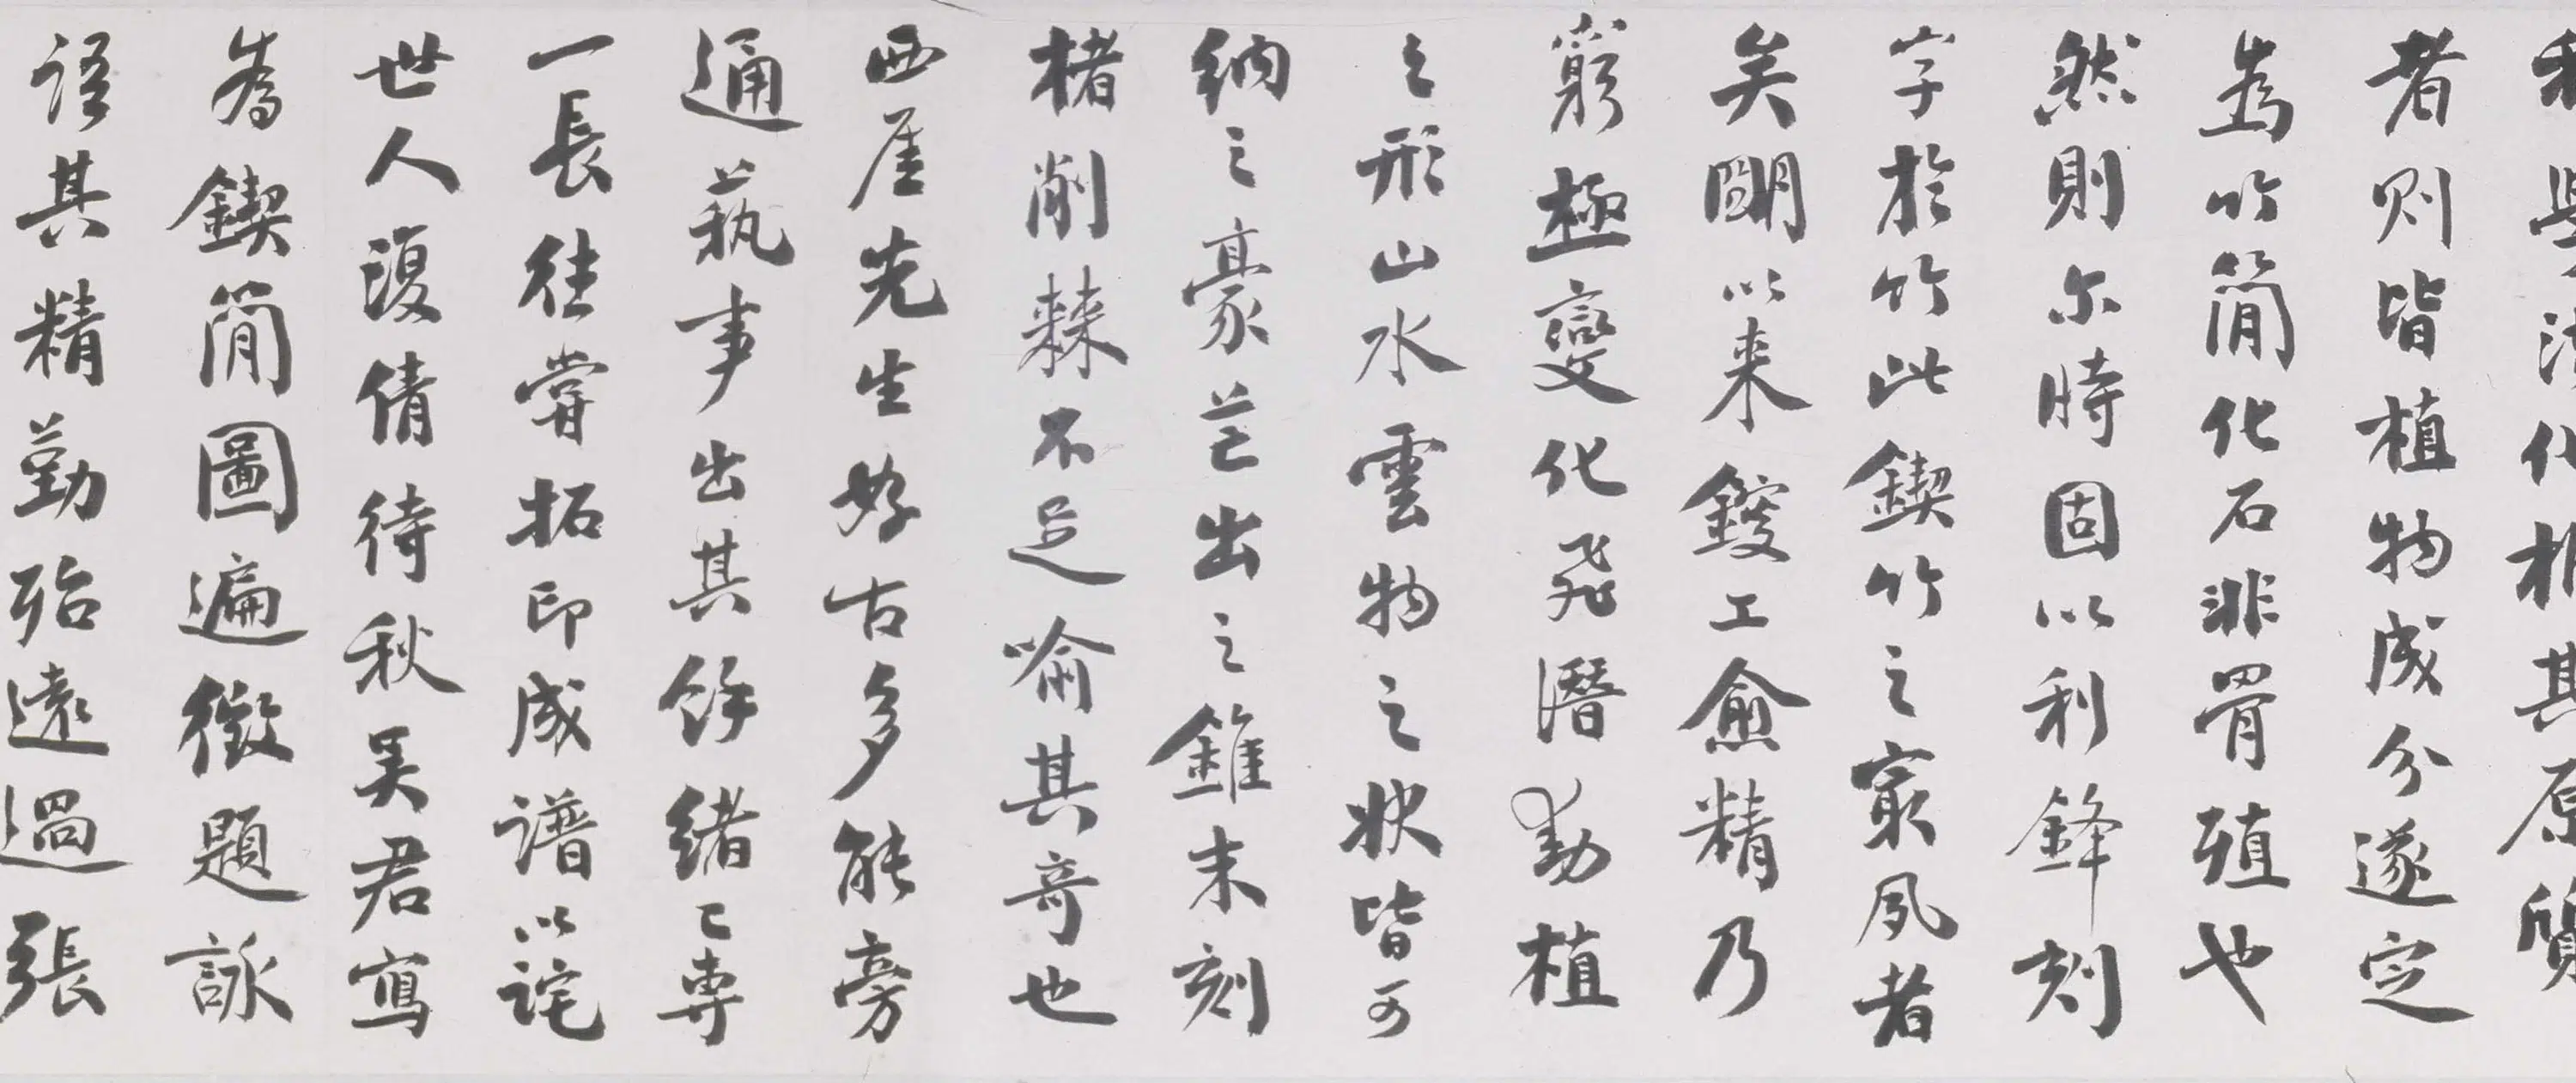 化其原質
者則皆植物成分遂定
為竹簡化石非骨殖也
然則尔時固以利鋒刻
字於竹此鍥竹之冣夙者
矣朙以来鋄工愈精乃
窮極變化飛潛動植
之形山水雲物之狀皆可
納之豪芒出之錐末刻
楮削棘不足喻其奇也
西厓先生好古多能旁
通蓺事出其餘緒已専
一長往嘗拓印成譜以詫
世人復倩待秋吴君寫
為鍥簡圖遍徵題詠
謹其精勤殆遠過張